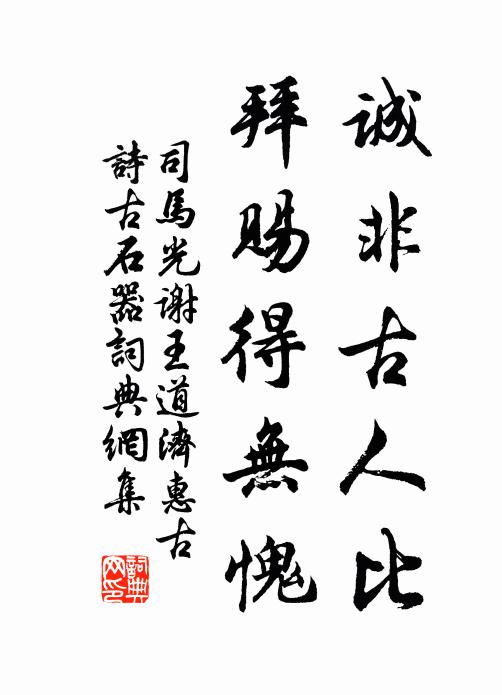 誠非古人比
拜賜得無愧
司馬光謝王道濟惠古
詩古石器詞典網集
詞典
网印